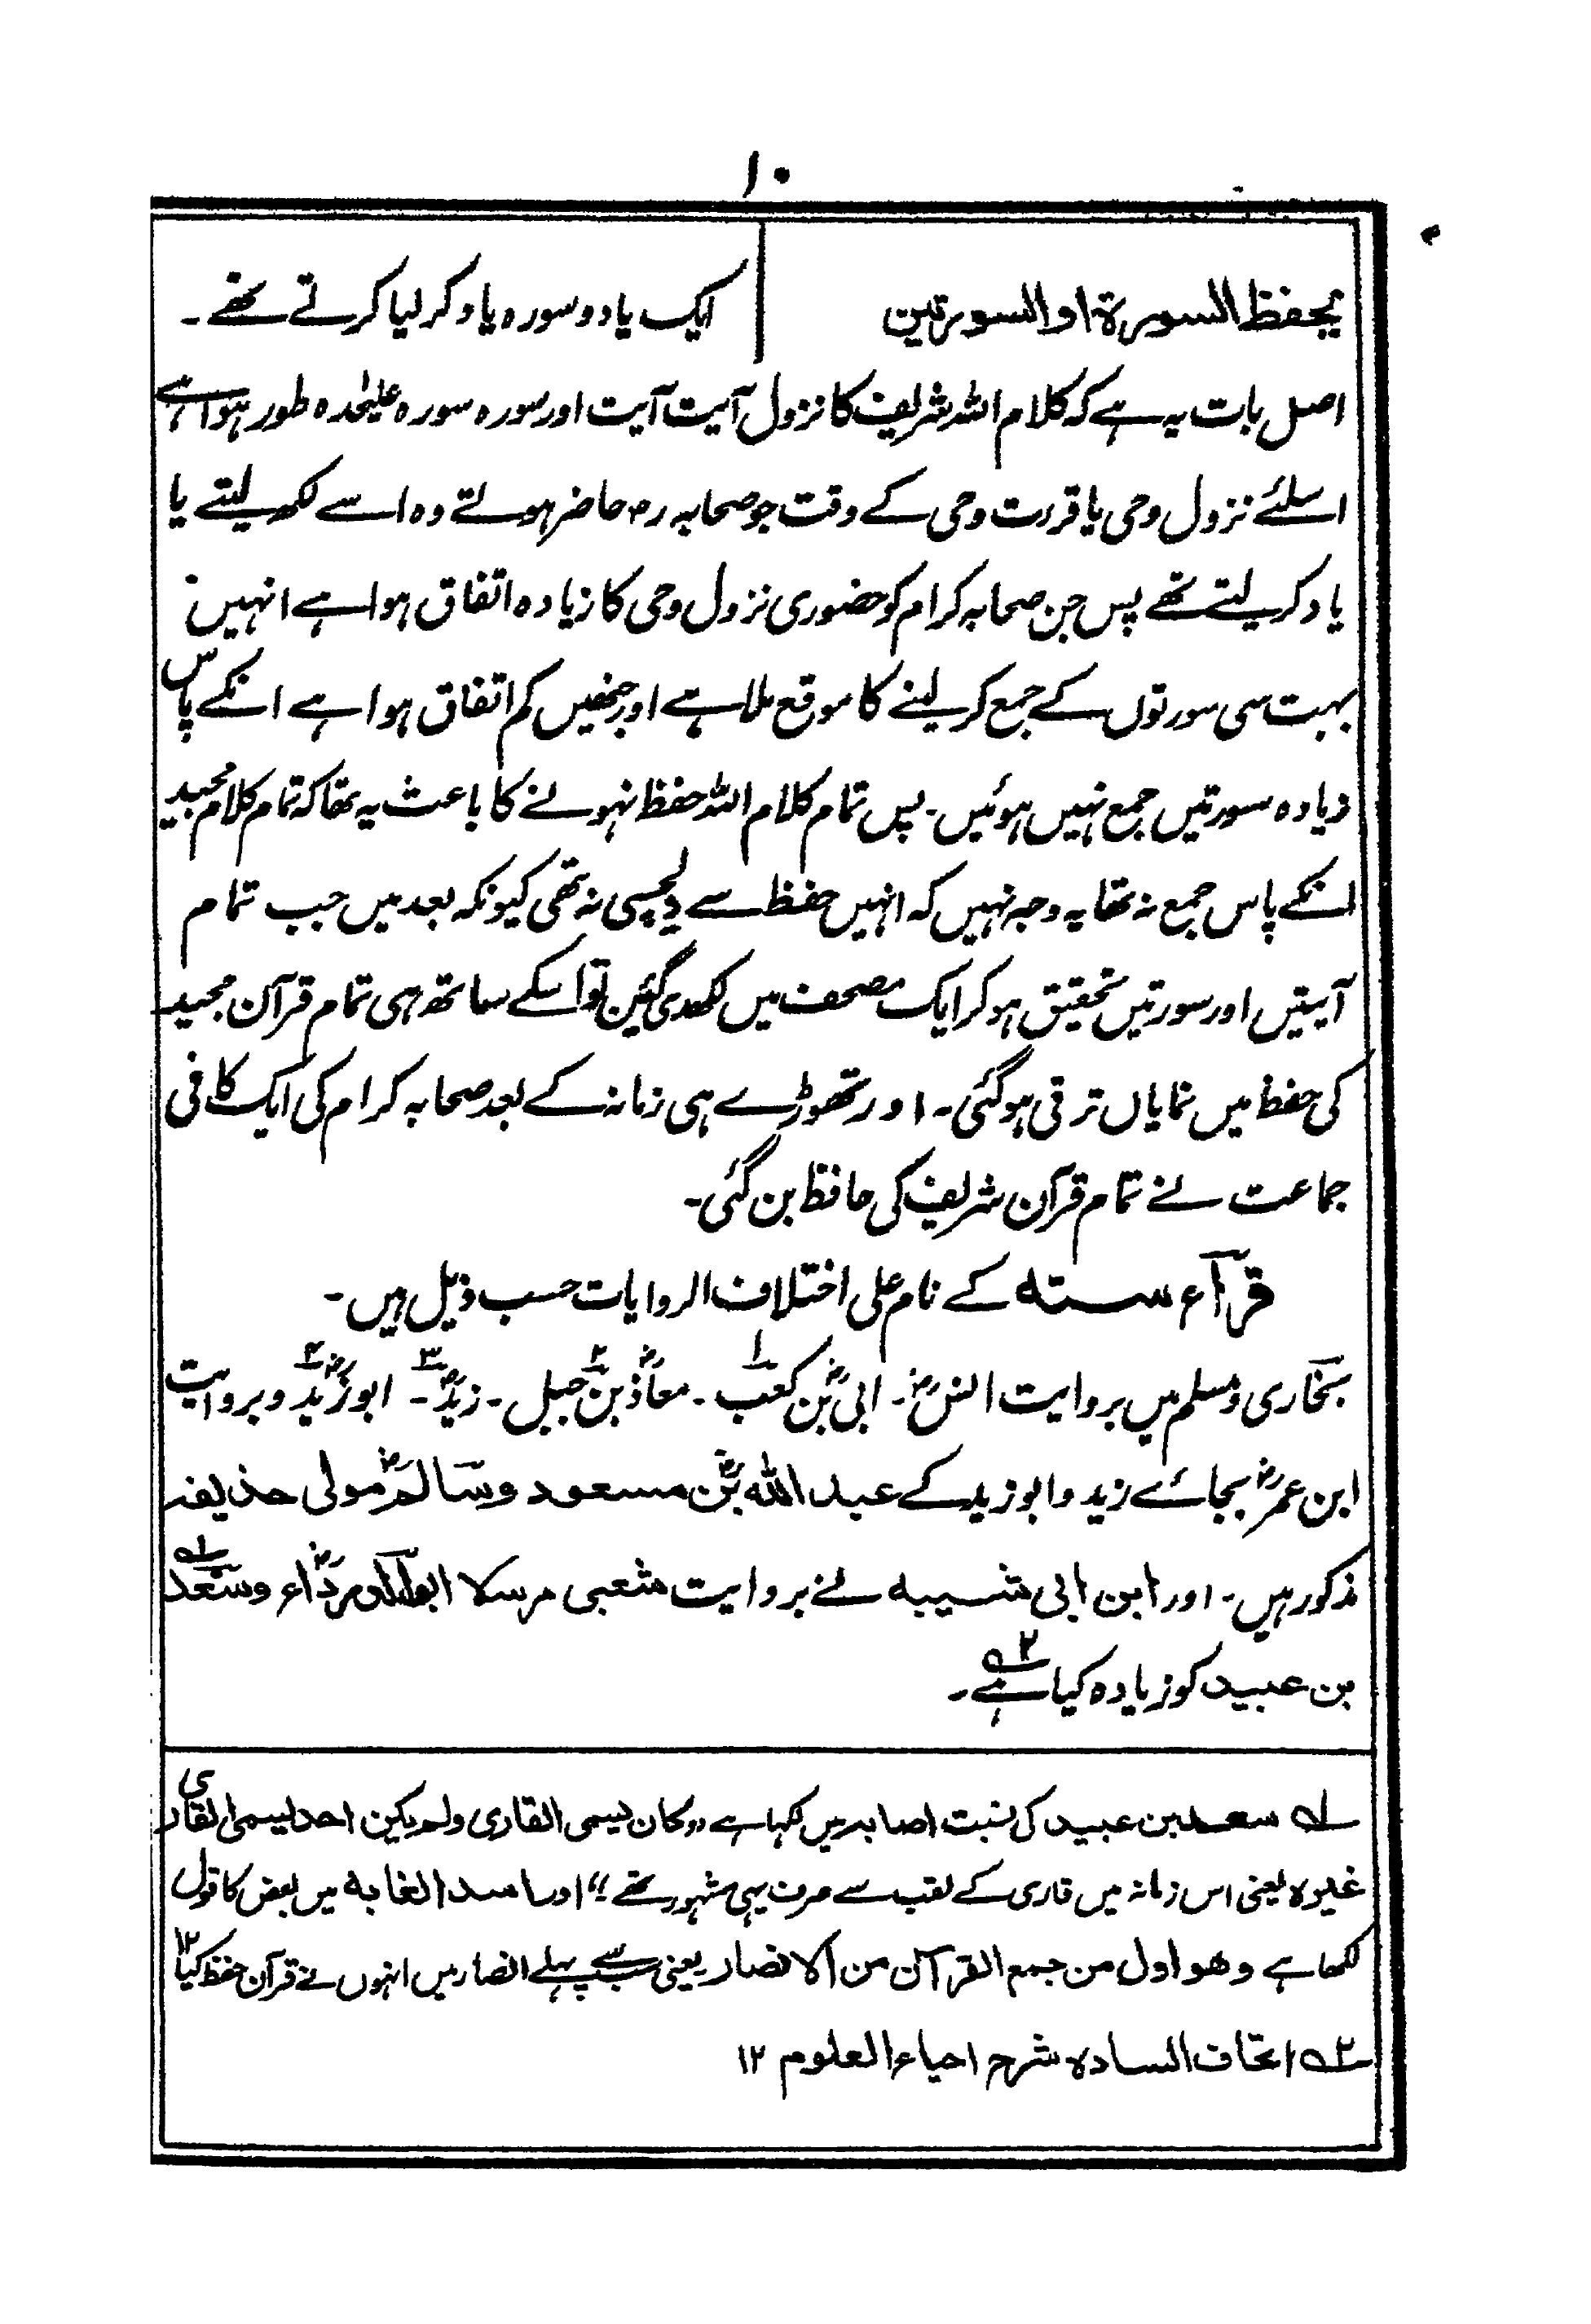 ١٠
يحفظ السورة او السورتين
ایک یا دو سورہ یاد کر لیا کرتے تھے ۔
اصل بات یہ ہے کہ کلام اللہ شریف کا نزول آیت آیت اور سورہ سورہ علیٰحدہ طور ہوا ہے
اسلئے نزول وحی یا قرءت وحی کے وقت جو صحابہ رض حاضر ہوتے وہ اسے لکھ لیتے یا
یاد کر لیتے تھے پس جن صحابہ کرام کو حضوری نزول وحی کا زیادہ اتفاق ہوا ہے انہیں
بہت سی سورتوں کے جمع کر لینے کا موقع ملا ہے اور جنھیں کم اتفاق ہوا ہے انکے پاس
زیادہ سورتیں جمع نہیں ہوئیں ۔ پس تمام کلام اللہ حفظ نہونے کا باعث یہ تھا کہ تمام کلام مجید
انکے پاس جمع نہ تھا یہ وجہ نہیں کہ انہیں حفظ سے دلچسپی نہ تھی کیونکہ بعد میں جب تمام
آیتیں اور سورتیں تحقیق ہو کر ایک مصحف میں لکھدی گئیں تو اسکے ساتھ ہی تمام قرآن مجید
کی حفظ میں نمایاں ترقی ہو گئی ۔ اور تھوڑے ہی زمانہ کے بعد صحابہ کرام کی ایک کافی
جماعت نے تمام قرآن شریف کی حافظ بن گئی ۔
قرآء ستہ کے نام علی اختلاف الروایات حسب ذیل ہیں ۔
بخاری و مسلم میں بروایت انسؓ ۔ ابیؓ بن کعب۱ ۔ معاذؓ بن جبل۲ ۔ زیدؓ۳ ۔ ابو زیدؓ۴ و بروایت
ابن عمرؓ بجائے زید و ابو زید کے عبد اللہؓ بن مسعود و سالمؓ مولی حذیفہ
مذکور ہیں ۔ اور ابن ابی شیبہ نے بروایت شعبی مرسلا ابو الدرداءؓ و سعد۱ؔ
بن عبید کو زیادہ کیا ہے۲ؔ ۔
۱ؔ سعد بن عبید کی نسبت اصابہ میں لکہا ہے ،،کان یسمی القاری ولم یکن احد یسمی القاری
غیرہ یعنی اس زمانہ میں قاری کے لقب سے صرف یہی مشہور تھے ،، اور اسد الغابہ میں بعض کا قول
لکھا ہے وهو اول من جمع القرآن من الانصار یعنی سب سے پہلے انصار میں انہوں نے قرآن حفظ کیا ۱۲
۲ؔ اتحاف السادہ شرح احیاء العلوم ۱۲